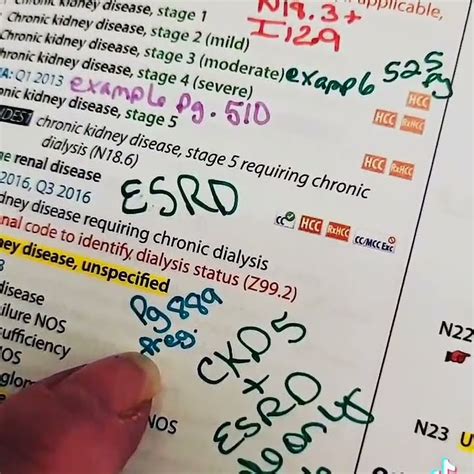 Chronic kidney disease, stage 1
Chronic kidney disease, stage 2 (mild)
Chronic kidney disease, stage 3 (moderate)
hronic kidney disease, stage 4 (severe)
A: Q1 2013
onic kidney disease, stage 5
chronic kidney disease, stage 5 requiring chronic
dialysis (N18.6)
renal disease
2016, Q3 2016
dney disease requiring chronic dialysis
nal code to identify dialysis status (Z99.2)
ney disease, unspecified
disease
ilure NOS
sufficiency
OS
glom
NOS
pplicable,
N18.3 +
I12.9
525
pg
example pg. 510
HCC
HCC RxHCC
HCC RxHCC
CC HCC RxHCC CC/MCC Exc
ESRD
Pg 889
preg.
CKD5
+
ESRD
N22
N23 U